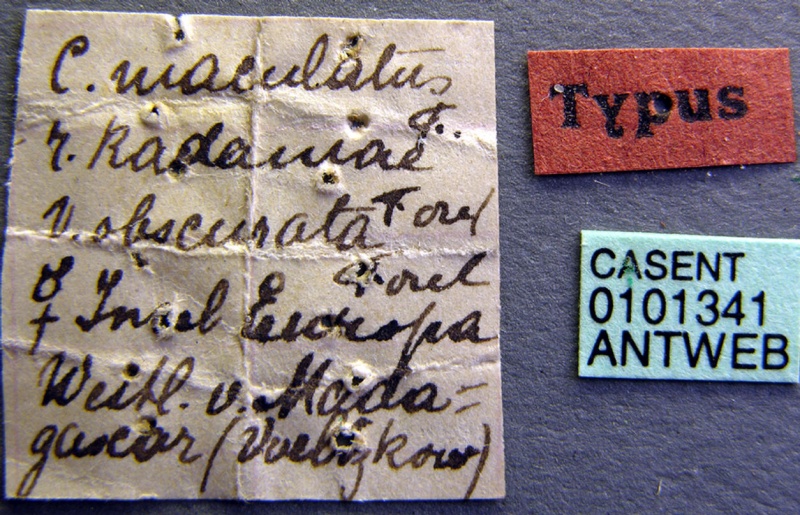 C. maculatus
F.
r. Radamae
V. obscurata Forel
☿ Forel
Insel Europa
Westl. v. Mada=
gascar (Voeltzkow)
Typus
CASENT
0101341
ANTWEB